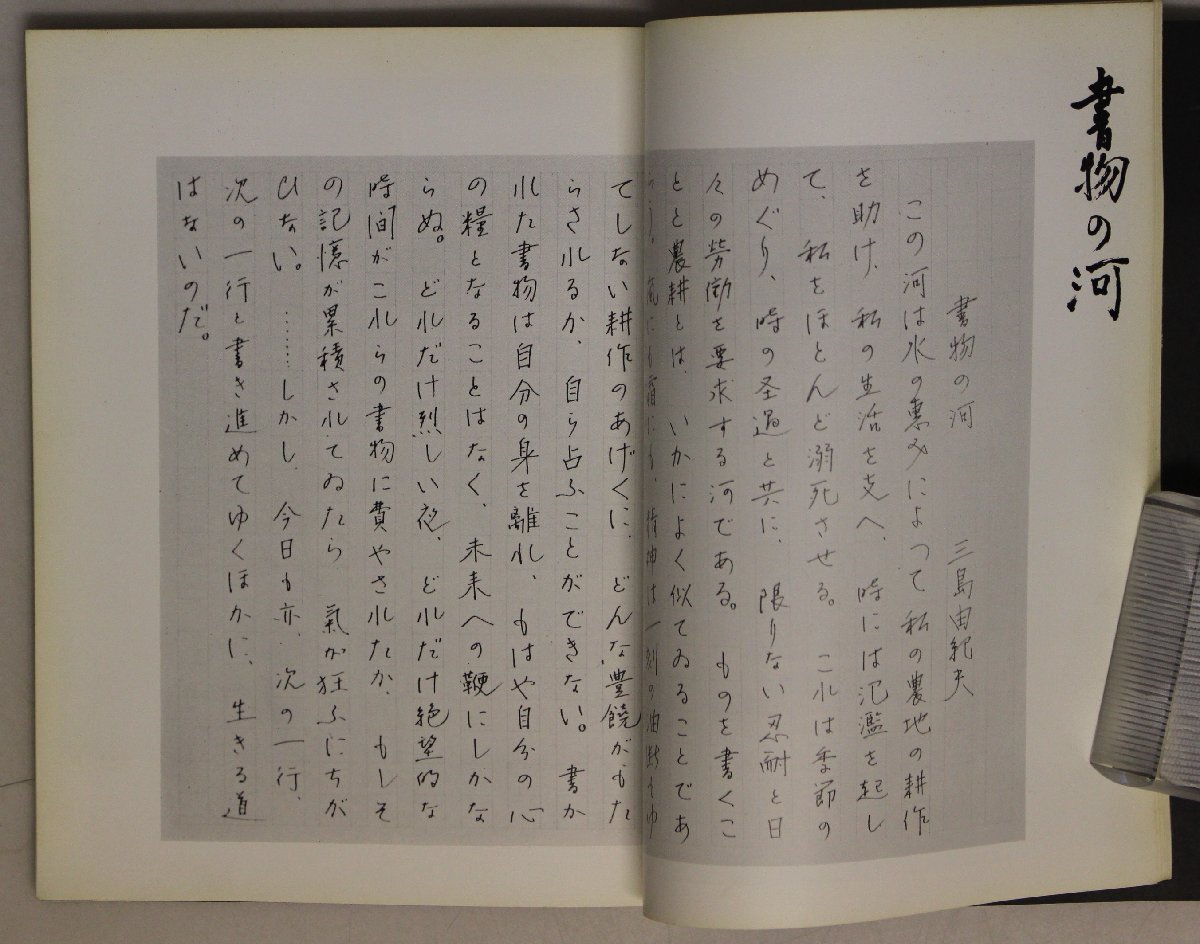 書物の河
書物の河　三島由紀夫
この河は水の恵みによつて私の農地の耕作
を助け、私の生活を支へ、時には氾濫を起し
て、私をほとんど溺死させる。これは季節の
めぐり、時の经過と共に、限りない忍耐と日
々の労働を要求する河である。ものを書くこ
とと農耕とは、いかによく似てゐることであ
らう。嵐にも霜にも、精神は一刻の油断もゆ
てしない耕作のあげくに、どんな豊饒がもた
らされるか、自ら占ふことができない。書か
れた書物は自分の身を離れ、もはや自分の心
の糧となることはなく、未来への鞭にしかな
らぬ。どれだけ烈しい夜、どれだけ絶望的な
時間がこれらの書物に費やされたか、もしそ
の記憶が累積されてゐたら　氣が狂ふにちが
ひない。………しかし、今日も亦、次の一行、
次の一行と書き進めてゆくほかに、生きる道
はないのだ。